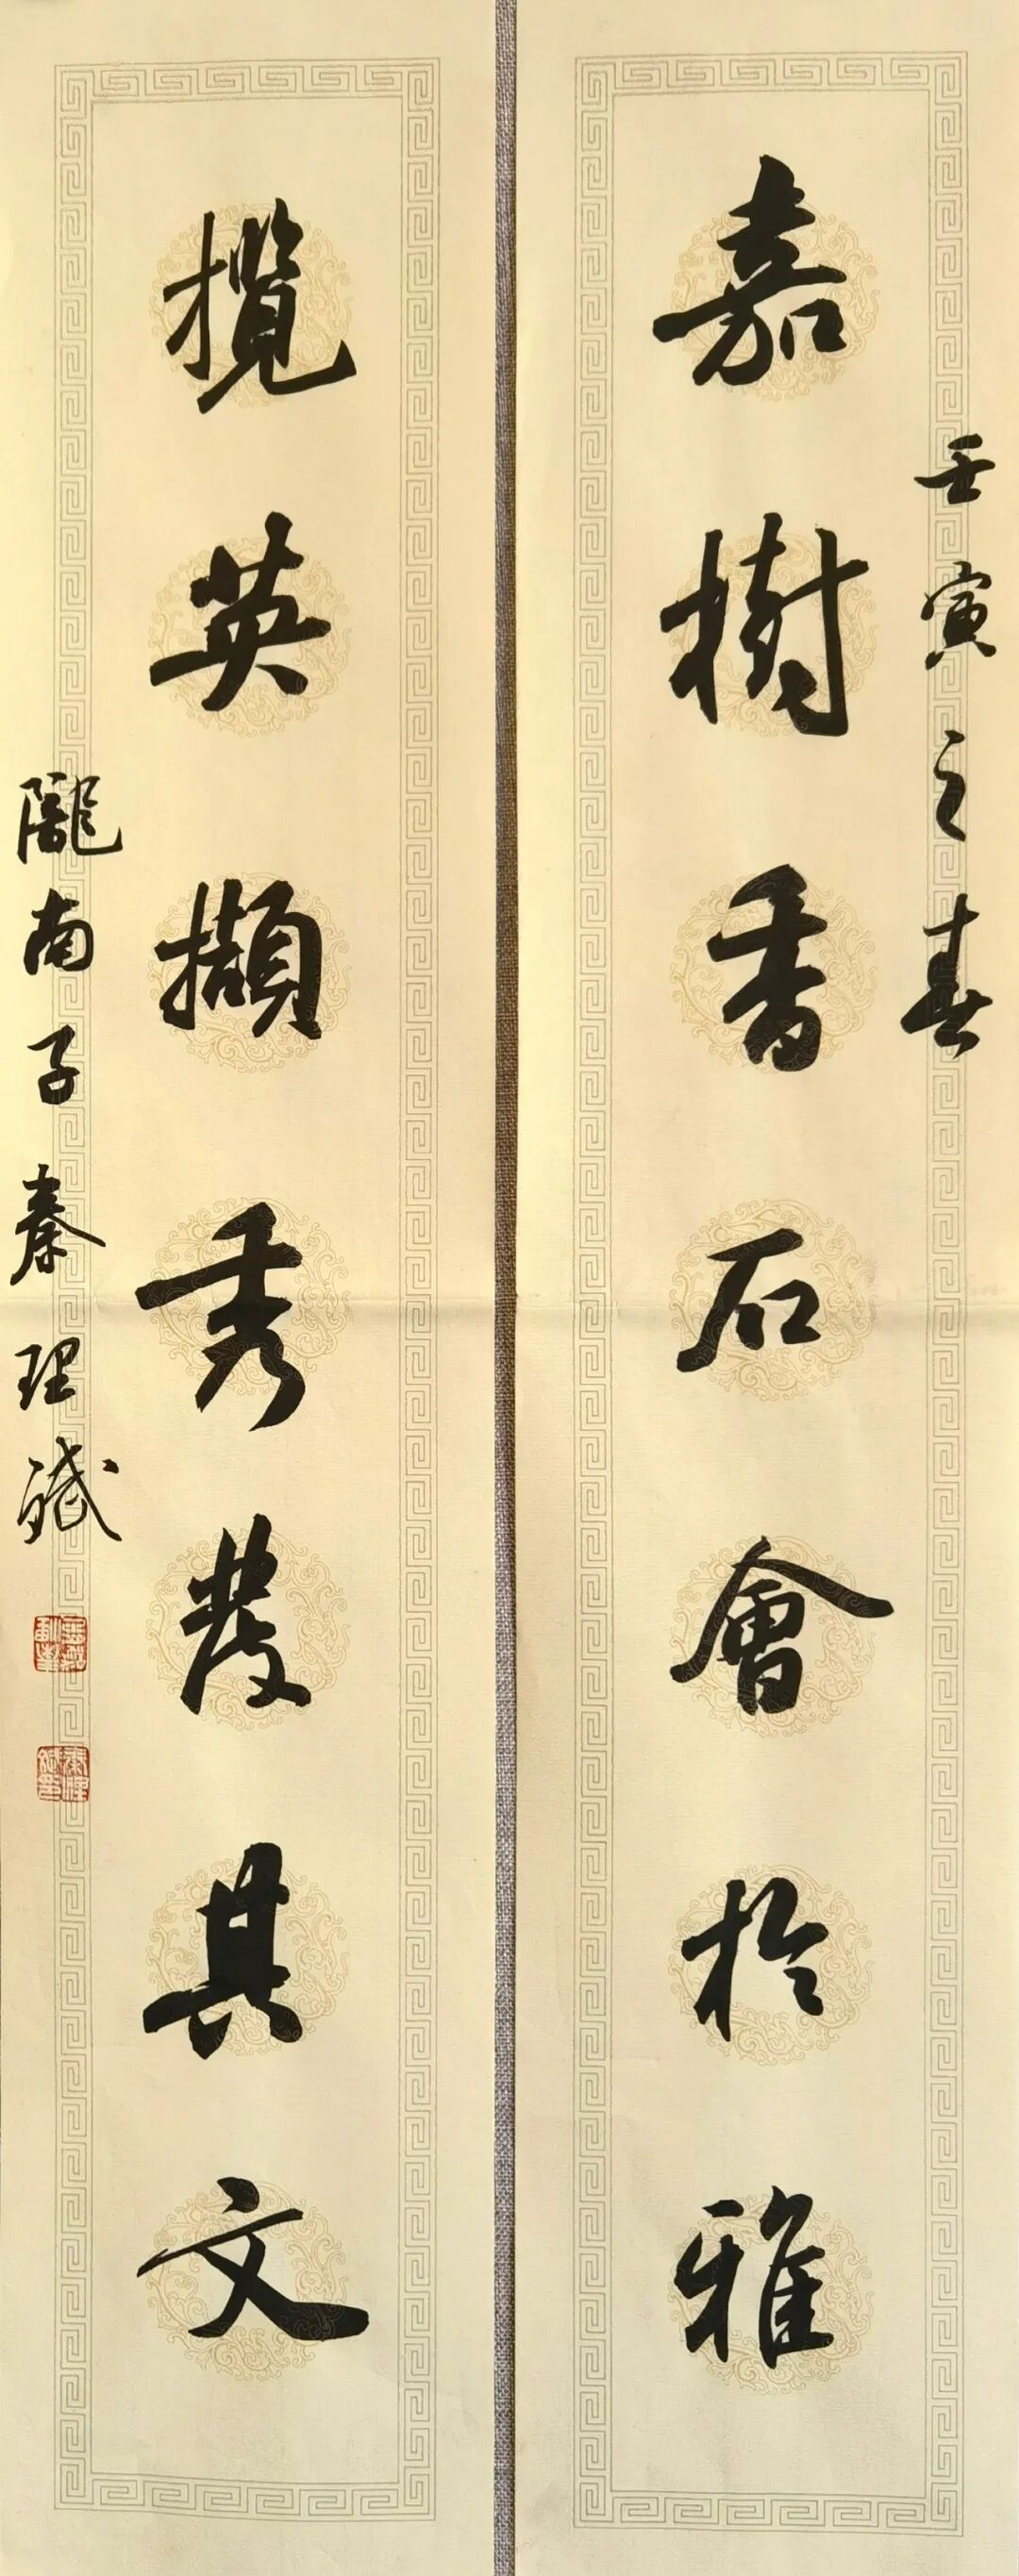 壬寅之春
嘉樹香石會於雅
攬英擷秀發其文
隴南子秦理斌